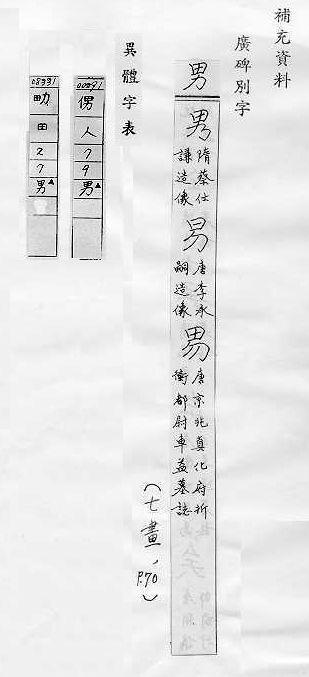 補充資料
廣碑別字
男
男
隋蔡仕
謙造像
唐李永
嗣造像
唐京兆真化府折
衝都尉車益墓誌
(七畫，P.70)
異體字表
侽
人
7
9
男▲
08331
田
2
7
男▲